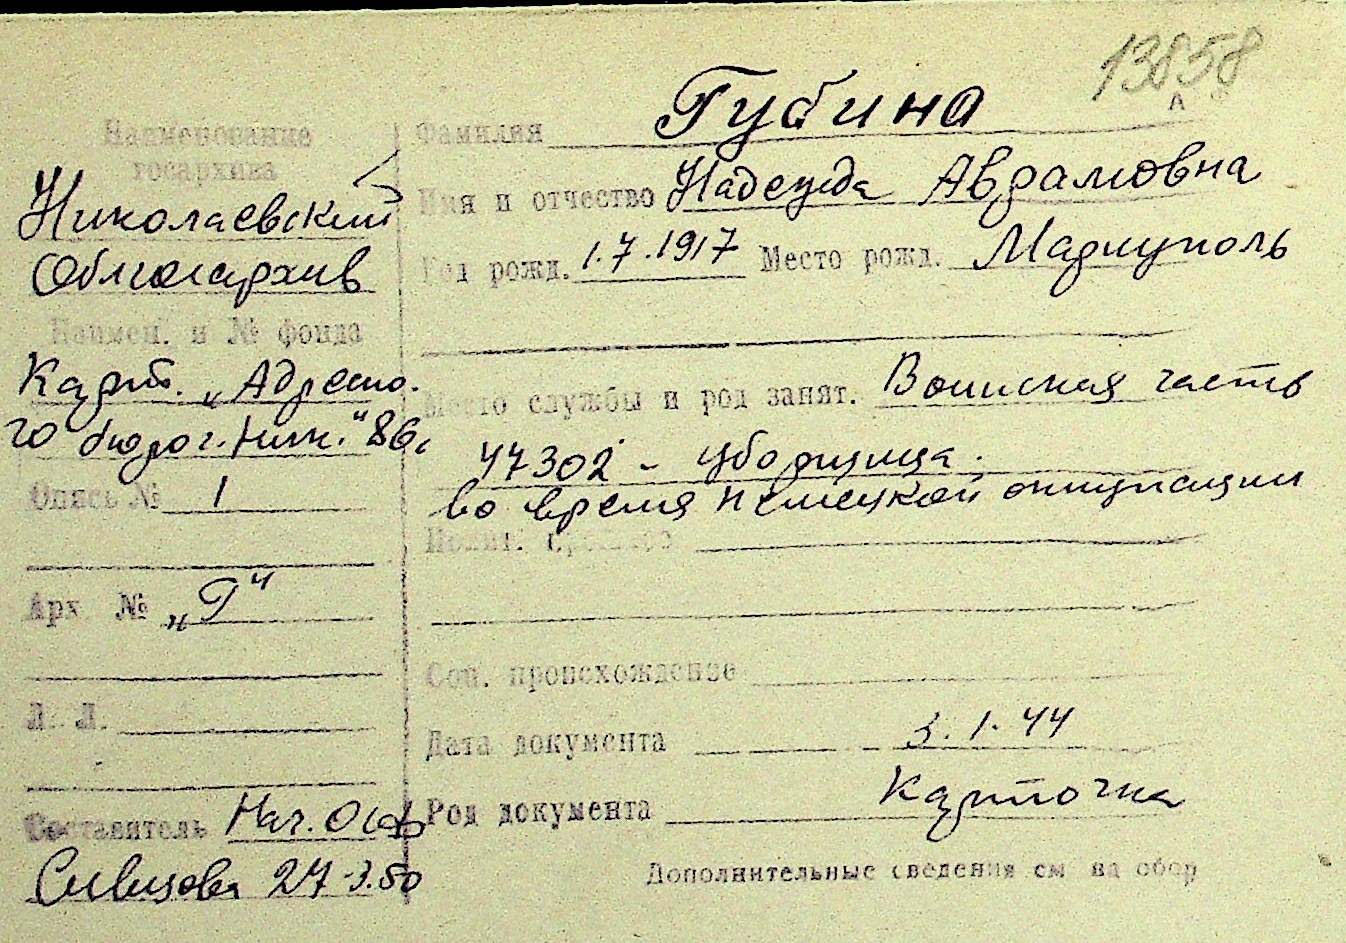 13858
Наименование
госархива
Николаевский
Облгосархив
Наимен. и № фонда
Карт. „Адресно-
го бюро г. Ник." 86с
Опись № 1
Арх. № „Г"
Л. Л.
Составитель Нач.
Сивцова 27-3.50
Фамилия Губина
Имя и отчество Надежда Аврамовна
Год рожд. 1.7.1917 Место рожд. Мариуполь
Место службы и род занят. Воинская часть
47302 - уборщица.
во время немецкой оккупации
Полит. прошлое
Соц. происхождение
Дата документа 3.1.44
Род документа Карточка
Дополнительные сведения см на обор